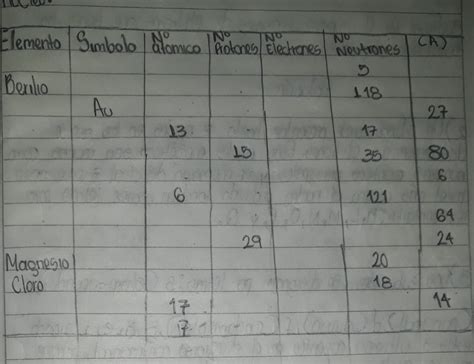 Elemento Simbolo Nº atomico Nº Protones Nº Electrones Nº Neutrones (A)
5
Berilio 118
Au 27
13 17
15 35 80
6
6 121
64
29 24
Magnesio 20
Cloro 18
17 14
7